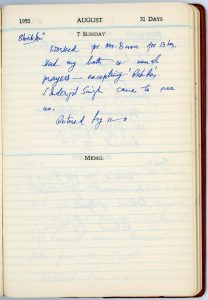 1955 AUGUST 31 DAYS
7 SUNDAY
Stockton"
Worked for Mr. for 13 hrs
Had my bath & much
prayers — excepting
Inderjit Singh came to see
me.
Retired by 11-0
MEMO.